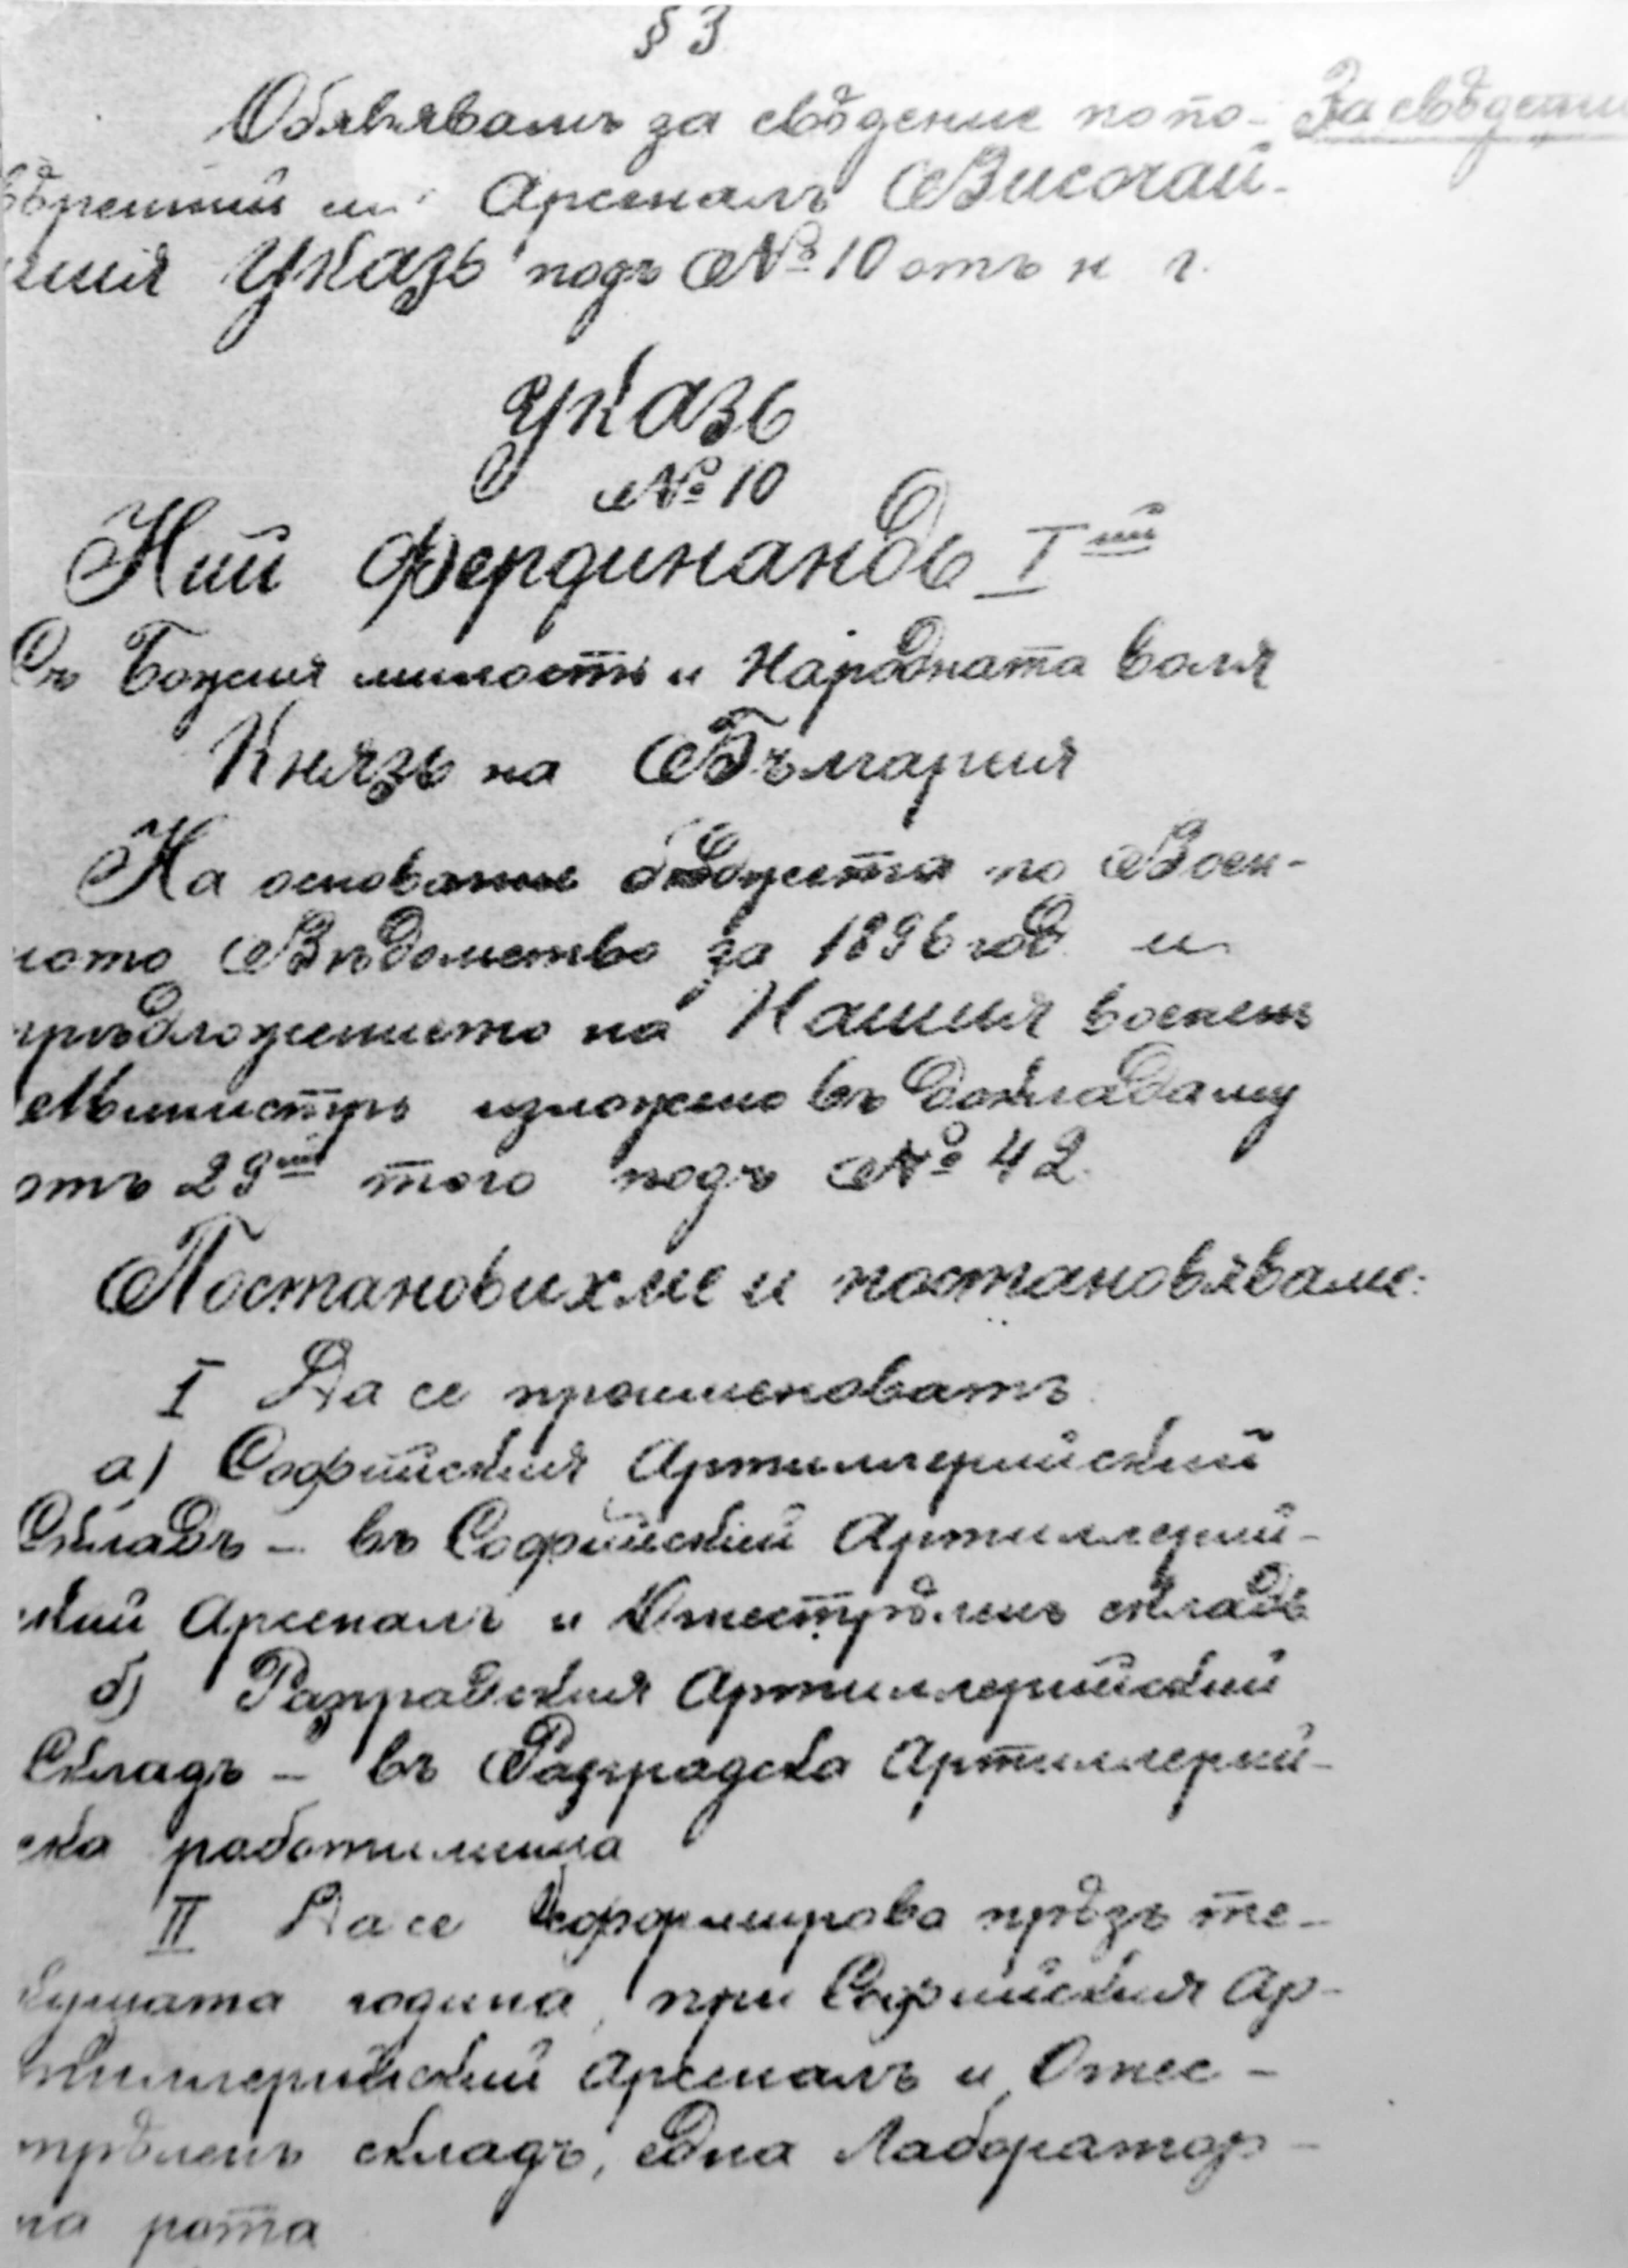 § 3
Обявявамъ за сведение по по- За сведение
Арсеналъ Височай-
шия Указъ подъ № 10 отъ н г.
Указъ
№ 10
Ний Фердинандъ I ий
Съ Божия милость и Народната воля
Князъ на България
На основание бюджета по Воен-
ното Вѣдомство за 1896 год. и
прѣдложението на Нашия военен
Министръ изложено въ доклада му
отъ 29 ий того подъ № 42.
Постановихме и постановяваме:
I Да се преименоватъ
а) Софийския Артиллерийский
Складъ – въ Софийский Артиллерий-
ский Арсеналъ и Огнестрѣленъ складъ
б) Разградския Артиллерийский
Складъ – въ Разградска Артиллерий-
ска работилница
II Да се сформирова прѣзъ те-
кущата година, при Софийския Ар-
тиллерийский Арсеналъ и Огнес-
трѣленъ складъ, една Лаборатор-
на рота